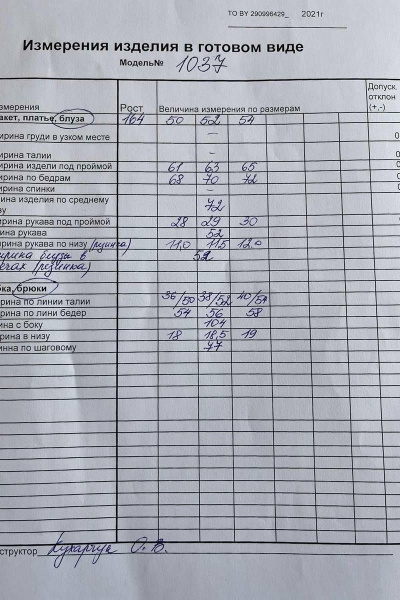 ТО BY 290996429_ 2021г
Измерения изделия в готовом виде
Модель№ 1037
Допуск.
змерения Рост Величина измерения по размерам отклон
(+,-)
акет, платье, блуза 164 50 52 54
ирина груди в узком месте –
ирина талии –
ирина издели под проймой 61 63 65
ирина по бедрам 68 70 72
ирина спинки –
ина изделия по среднему
ву 72
ирина рукава под проймой 28 29 30
ина рукава 52
ирина рукава по низу 11,0 11,5 12,0
ирина блузы в 52
(резинка)
бка, брюки
ирина по линии талии 36/50 38/52 40/54
ирина по лини бедер 54 56 58
ина с боку 104
ирина в низу 18 18,5 19
инна по шаговому 77
структор О. В.